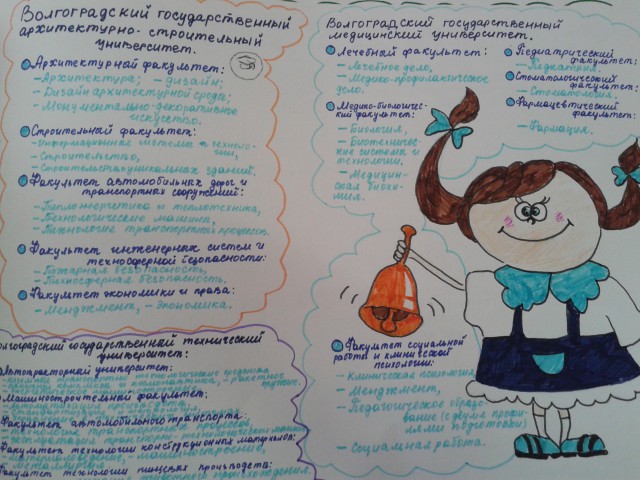 Волгоградский государственный
архитектурно-строительный
университет.
Архитектурный факультет:
- Архитектура; - дизайн;
- Дизайн архитектурной среды;
- Монументально-декоративное
искусство.
Строительный факультет:
- Информационные системы и техноло-
гии,
- Строительство,
- Строительство уникальных зданий.
Факультет автомобильных дорог и
транспортных сооружений:
- Теплоэнергетика и теплотехника,
- Технологические машины,
- Технологие транспортных процессов.
Факультет инженерных систем и
техносферной безопасности:
- Пожарная безопасность,
- Техносферная безопасность.
Факультет экономики и права:
- Менеджмент, - Экономика.
Волгоградский государственный технический
университет:
Автотракторный университет:
Машиностроительный факультет:
Факультет автомобильного транспорта:
Факультет технологии конструкционных материалов:
- материаловедение, - машиностроение,
- металлургия
Факультет технологии пищевых производств:
Волгоградский государственный
медицинский университет.
Лечебный факультет:
- Лечебное дело,
- Медико-профилактическое
дело.
Медико-биологичес-
кий факультет:
- Биология,
- Биотехничес-
кие системы и
технологии,
- Медицин-
ская биохи-
мия.
Педиатрический
факультет:
- Педиатрия.
Стоматологический
факультет:
- Стоматология.
Фармацевтический
факультет:
- Фармация.
Факультет социальной
работы и клинической
психологии:
- Клиническая психология,
- Менеджмент,
- Педагогическое образо-
вание (с двумя профи-
лями подготовки)
- Социальная работа.